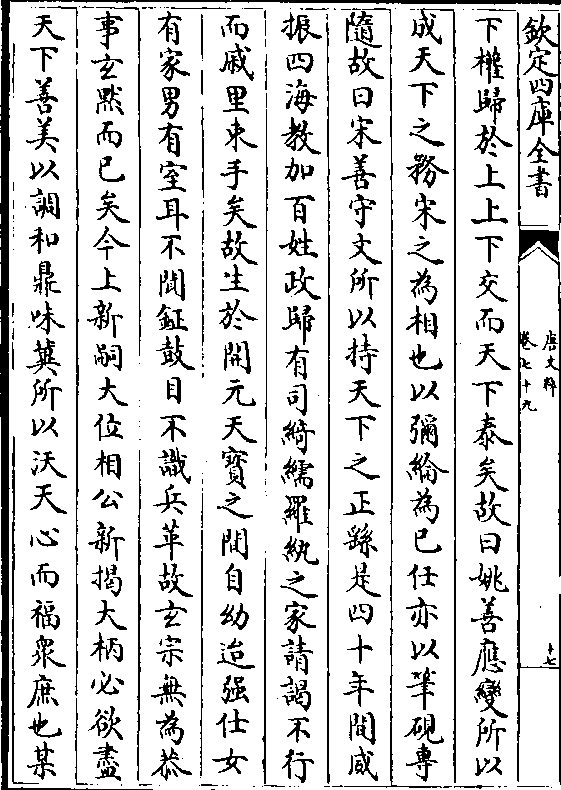 欽定四庫全書
唐文粹
卷七十九
十七
下權歸於上上下交而天下泰矣故曰姚善應變所以
成天下之務宋之為相也以彌綸為已任亦以筆硯專
隨故曰宋善守文所以持天下之正繇是四十年間威
振四海教加百姓政歸有司綺繻羅紈之家請謁不行
而戚里束手矣故生於開元天寳之間自幼迨强仕女
有家男有室耳不聞鉦鼓目不識兵革故玄宗無為恭
事玄黙而已矣今上新嗣大位相公新揭大柄必欲盡
天下善美以調和鼎味冀所以沃天心而福衆庶也某